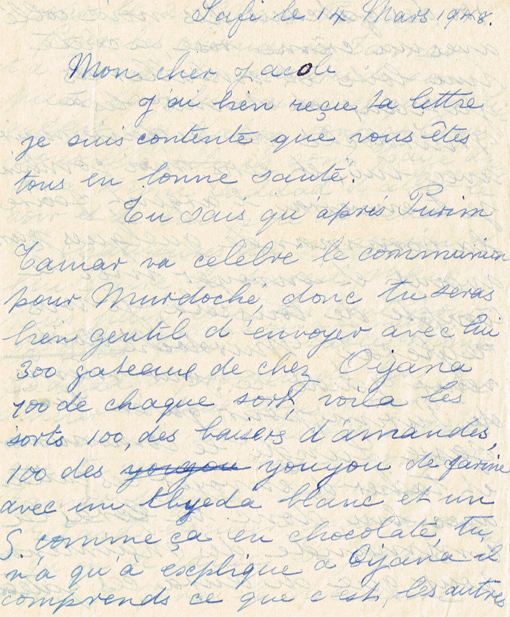 Safi le 14 Mars 1948.
Mon cher Jacob
j'ai bien reçue ta lettre
je suis contente que vous êtes
tous en bonne santé.
Tu sais qu'aprés Purim
Tamar va celebre le communion
pour Murdoché, donc tu seras
bien gentil d'envoyer avec lui
300 gateaux de chez Oijana
100 de chaque sort, voila les
sorts 100, des baisers d'amandes,
100 des youyou de farine
avec un blanc et un
S. comme ça en chocolaté, tu
n'a qu'à explique a Oijana il
comprends ce que c'est, les autres